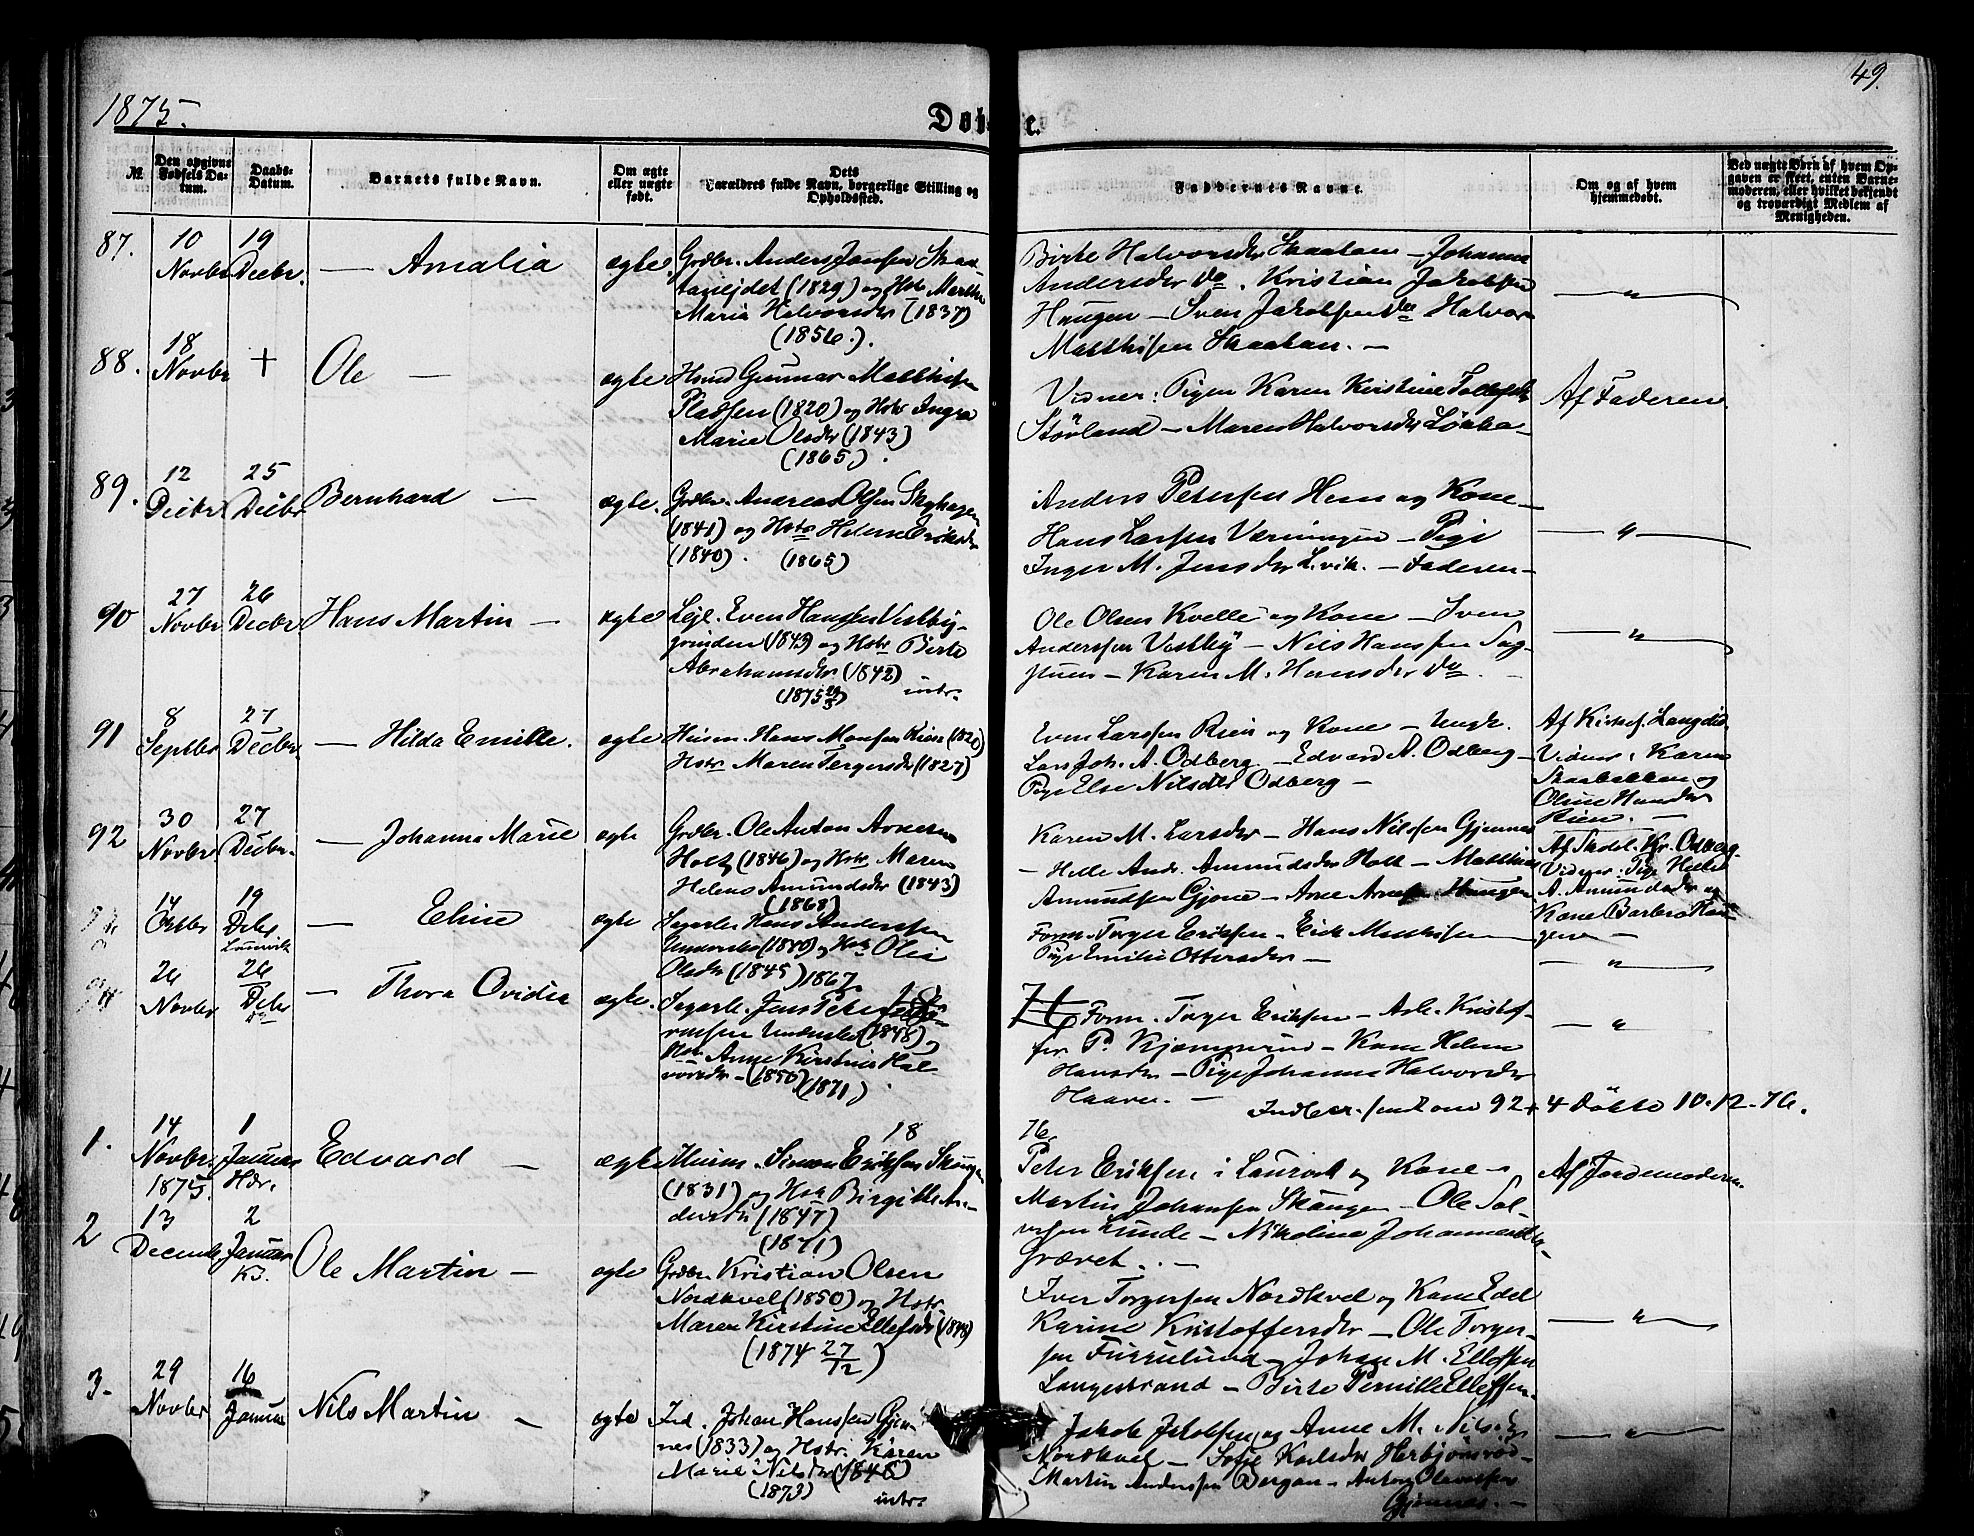 1875.
49.
Døbte.
№
Den opgivne Fødsels Datum.
Daabs-Datum.
Barnets fulde Navn.
Om ægte eller uægte født.
Dets Forældres fulde Navn, borgerlige Stilling og Opholdssted.
Faddernes Navne.
Om og af hvem hjemmedøbt.
Ved uægte Børn af hvem Opgaven er skeet, enten Barnemoderen, eller hvilket bekjendt og troværdigt Medlem af Menigheden.
87. 10 Novbr 19 Decbr. — Amalia ægte Grdbr. Anders Jansen
(1829) og Hstr Marthe
Maria Halvorsdr (1837)
(1856.).
Birte Halvorsdr Skaatan — Johanne
Andersdr do. Kristian Jakobsen
Haugen — Sven Jakobsen do Halvor
Matthisen Skaatan. —
— " —
88. 18 Novbr + Ole — ægte Gunnar Matthisen
Pladsen (1820) og Hstr Inger
Marie Olsdr (1843)
(1865.)
Vidner: Pigen Karen Kirstine
— Maren Halvorsdr
Af Faderen.
89. 12 Decbr 25 Decbr Bernhard — ægte. Grdbr. Andreas Olsen
(1841) og Hstr Helene
(1840). (1865)
Anders Petersen Hem og Kone —
Hans Larsen — Pige
Inger M. Jensdr — Faderen —
— " —
90 27 Novbr 26 Decbr Hans Martin — ægte Lejl. Even Hansen Vestby-
grinden (1849) og Hstr Birte
Abrahamsdr (1842)
(1875) intr.
Ole Olsen Kvelle og Kone — Iven
Andersen Vestby — Nils Hansen Sag-
stuen — Karen M. Hansdr do
— " —
91 8 Septbr 27 Decbr. — Hilda Emilie. ægte Husm. Hans Monsen (1820)
Hstr Maren Tergersdr (1827)
Even Larsen Rien og Kone — Ungk.
Lars Joh. A. Odberg — Edvard A. Odberg —
Pige Else Nilsdtr Odberg —
Af Kirkes.
Vidner: Karen
Skaabakken og
Oline Hansdr
Rien. —
92 30 Novbr 27 Decbr. — Johanna Marie ægte Grdbr. Ole Anton Arnesen
Holt (1846) og Hstr Maren
Helene Amundsdr (1843)
(1868)
Karen M. Larsdr — Hans Nilsen Gjennes
— Helle Andr. Amundsdr Holt — Matthias
Amundsen Gjone — Arne Arnesen Haugen
Kr. Odberg
Vidner: Pige Helle
A. Amundsdr og
Kone Barbro Hau-
gen —
14 Octbr 19 Decbr Laurvik — Eline ægte Sagarb. Hans Andersen
(1849) og Hstr
Olsdr (1845) 1867.
Form. Torger Eriksen — Erik Matthisen
Pige Emilie Ottersdr —
— " —
26 Novbr 26 Decbr do — Thora Ovidia ægte. Sagarb. Jens Peter
(1848) og
Hstr Anne Kirstine Hal-
vorsdr — (1850) (1871)
Form. Torger Eriksen — Arb. Kristof-
fer P. — Kone Helene
Hansdr — Pige Johanne Halvorsdr
Haaven. —
— " —
92 + 4 Døbte 10-12-76.
1876
1. 14 Novbr. 1875. 1 Januar Hdr. Edvard — ægte Husm. Simon Eriksen Skaugen
(1831) og Hstr Birgitte An-
dersdr (1847)
(1871)
Peter Eriksen i Laurvik og Kone —
Martin Johansen Skaugen — Ole Sol-
vesen Lunde — Nikoline Johannesdtr
Grævet. —
Af Jordemoderen
2 13 Decemb. 2 Januar K3. Ole Martin — ægte Grdbr. Kristian Olsen
Nordkvel (1850) og Hstr
Maren Kirstine Ellefsdr (1848)
(1874 27/12)
Iver Torgersen Nordkvel og Kone Edel
Karine Kristoffersdr — Ole Torger-
sen Furrulund — Johan M. Ellefsen
Langestrand — Birte Pernille Ellefsen —
— " —
3. 29 Novbr 16 Januar Nils Martin — ægte Ind. Johan Hansen Gjen-
nes (1833) og Hstr. Karen
Marie Nilsdr (1846)
(1873) intr.
Jakob Jakobsen og Anne M. Nilsdr
Nordkvel — Sofie Karlsdr Herbjønsrød —
Martin Andersen Bergan — Anton Olavesen
Gjennes. —
— " —